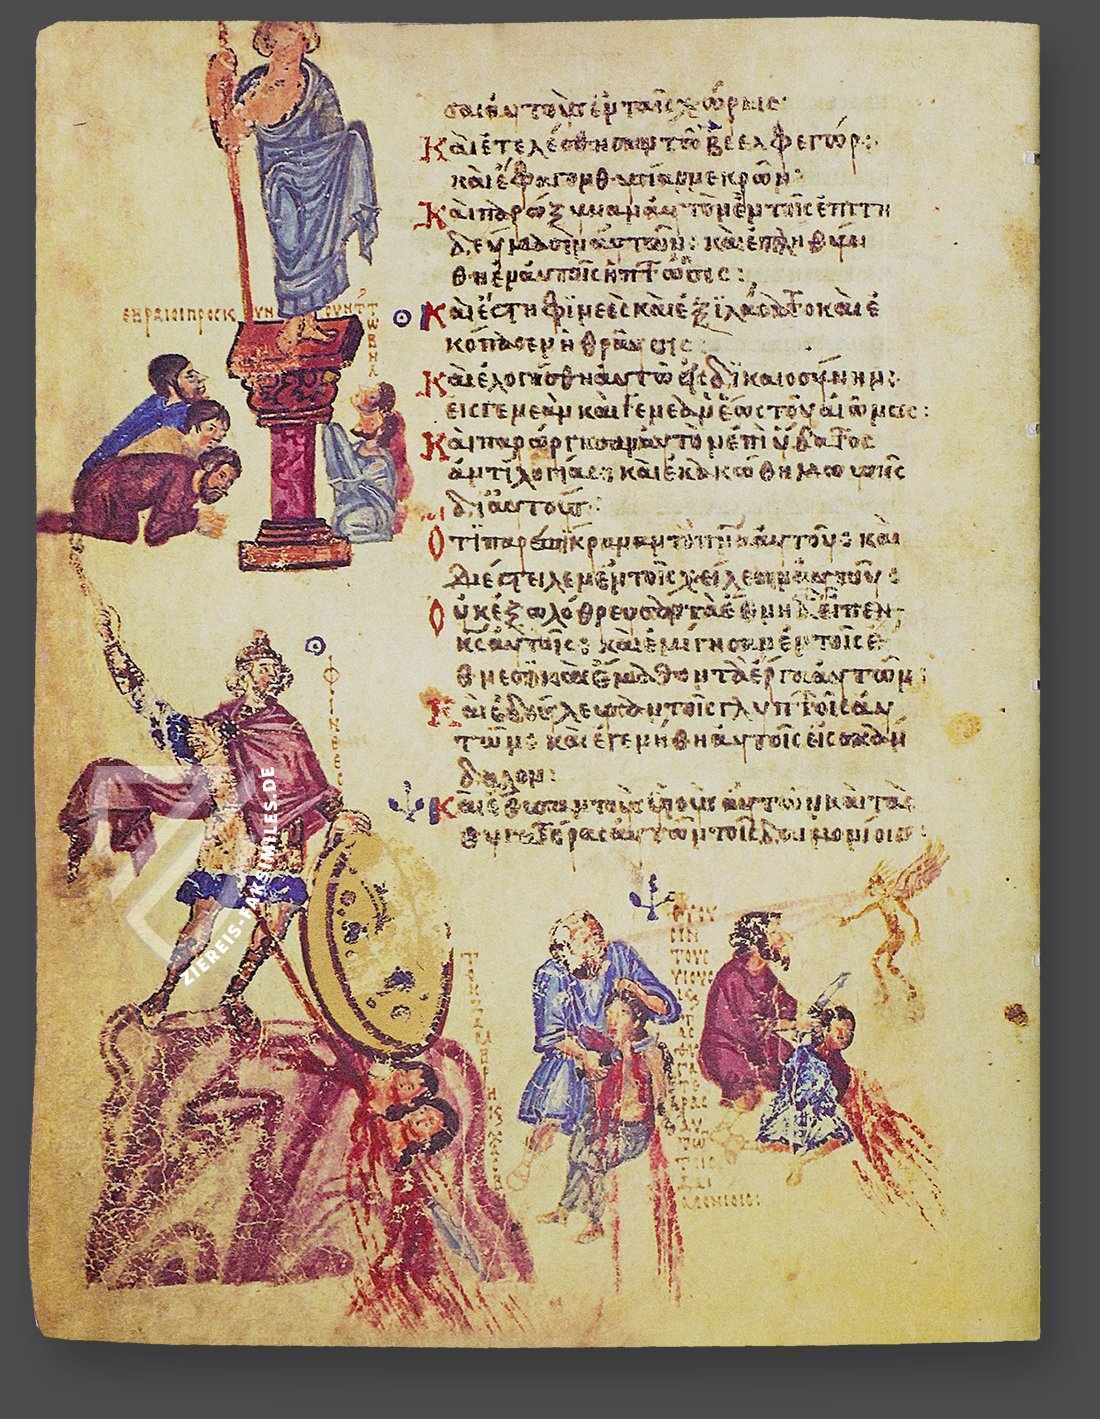 ΕΒΡΑΙΟΙ ΠΡΟΣΚΥΝΟΥΝΤ ΤΩ ΒΗΛ
σαι αὐτοὺς ἐν ταῖς χώραις·
Καὶ ἐτελέσθησαν τῶ Βεελφεγώρ:
καὶ ἔφαγον θυσίας νεκρῶν:
Καὶ παρώξυναν αὐτὸν ἐν τοῖς ἐπιτη
δεύμασιν αὐτῶν: καὶ ἐπληθύν
θη ἐν αὐτοῖς ἡ πτῶσις:
Καὶ ἔστη Φϊνεὲς καὶ ἐξϊλάσατο καὶ ἐ
κόπασεν ἡ θραῦσις:
Καὶ ἐλογίσθη αὐτῶ εἰς δϊκαιοσύνην:
εἰς γενεὰν καὶ γενεὰν ἕως τοῦ αἰῶνος:
Καὶ παρώργησαν αὐτὸν ἐπὶ ὕδατος
ἀντϊλογίας: καὶ ἐκακώθη Μωυσῆς
δϊ αὐτούς:
Ὅτϊ παρεπίκραναν τὸ πνα αὐτοῦ: καὶ
διέστειλεν ἐν τοῖς χείλεσιν αὐτοῦ:
Οὐκ ἐξωλόθρευσαν τὰ ἔθνη ἃ εἶπεν
κς αὐτοῖς: καὶ ἐμίγησαν ἐν τοῖς ἔ
θνεσϊν καὶ ἔμαθον τὰ ἔργα αὐτῶν:
Καὶ ἐδούλευσαν τοῖς γλυπτοῖς αὐ
τῶν: καὶ ἐγενήθη αὐτοῖς εἰς σκάν
δαλον:
Καὶ ἔθυσαν τοὺς υἱοὺς αὐτῶν καὶ τὰς
θυγατέρας αὐτῶν τοῖς δαιμονίοις
ΦΙΝΕΕC
ΖIEREIS-FAKSIMILES.DE